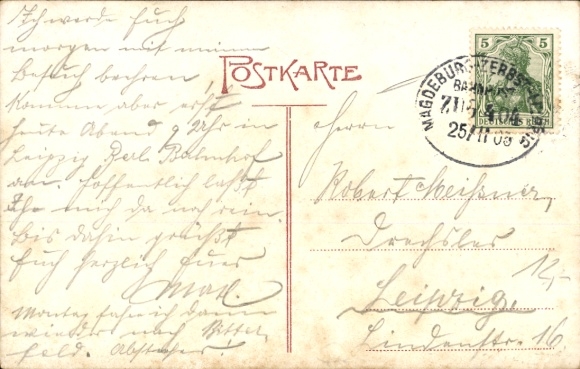 Ich werde Euch
morgen mit meinem
Besuch beehren,
komme aber erst
heute Abend 9 Uhr in
Leipzig Berl. Bahnhof
an. Hoffentlich laßt
Ihr mich da noch rein.
Bis dahin grüßt
Euch herzlich Euer
Max.
Montag fahre ich dann
wieder nach Bitter-
feld. Abstecher!
POSTKARTE
5 5
DEUTSCHES REICH
MAGDEBURG-ZERBST-LEIPZIG
BAHNPOST
ZUG
25/11 03
Herrn
Robert Meißner,
Drechsler
Leipzig
Lindenstr. 16
12,-